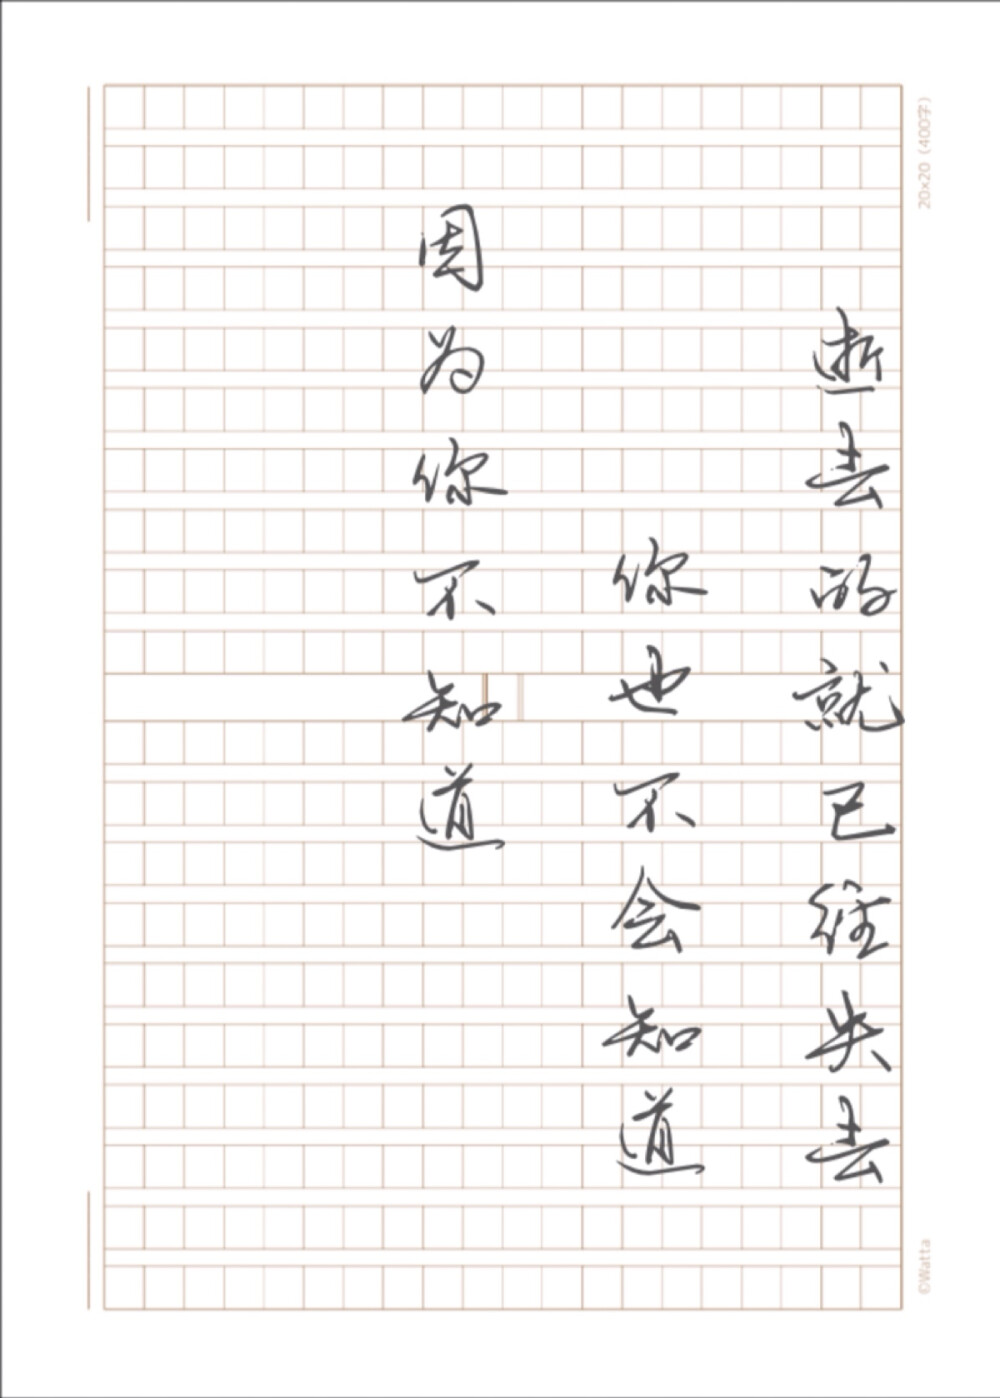 逝去的就已经失去
你也不会知道
因为你不知道
20x20（400字）
©Watta